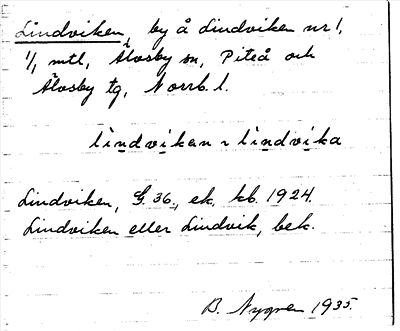 Lindviken, by å Lindviken nr 1,
1/1 mtl, Älvsby sn, Piteå och
Älvsby tg, Norrb. l.
lindvikan ~ lindvika
Lindviken, G. 36, ek. kb. 1924.
Lindviken eller Lindvik, bek.
B. Nygren 1935.